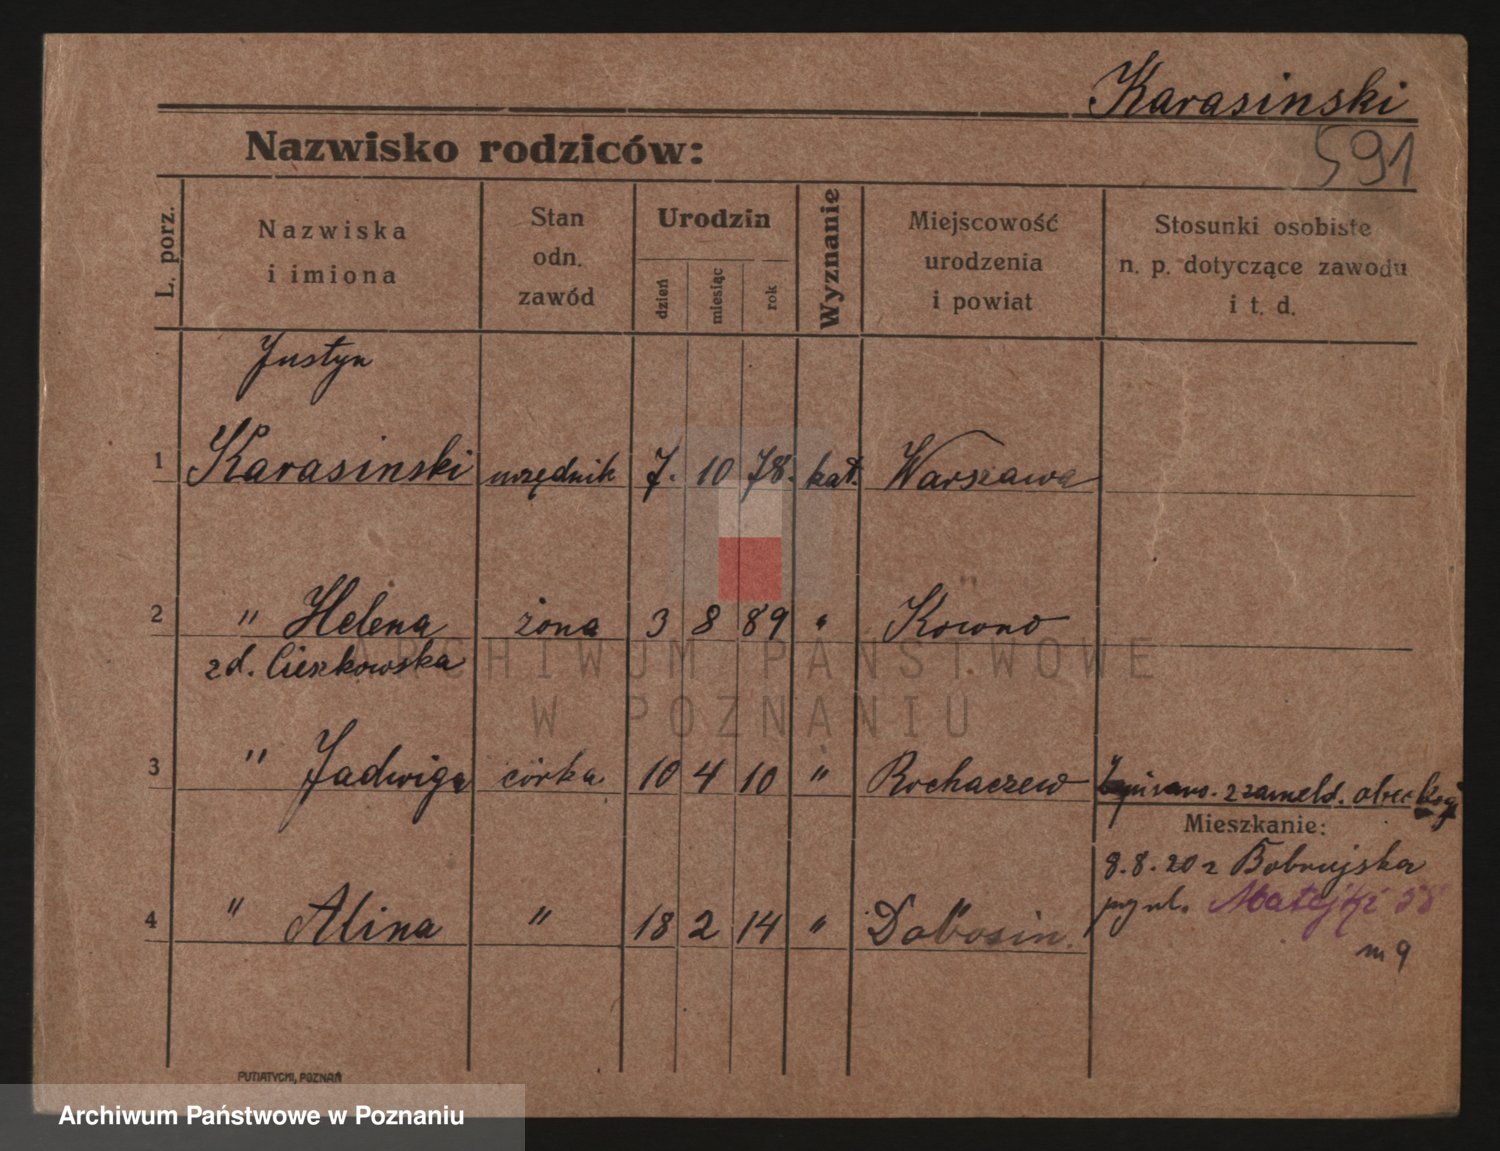 Karasinski
591
Nazwisko rodziców:
L. porz.
Nazwiska
i imiona
Stan
odn.
zawód
Urodzin
dzień
miesiąc
rok
Wyznanie
Miejscowość
urodzenia
i powiat
Stosunki osobiste
n. p. dotyczące zawodu
i t. d.
Justyn
1 Karasinski urzędnik 7. 10 78. kat. Warszawa
2 " Helena żona 3 8 89 " Kowno
zd. Cieszkowska
ARCHIWUM PAŃSTWOWE
W POZNANIU
3 " Jadwiga córka 10 4 10 " Rochaczew
z zameld.
Mieszkanie:
8.8.20 z Bobrujska
Matejki 58
m 9
4 " Alina " 18 2 14 "
PUTIATYCKI, POZNAŃ
Archiwum Państwowe w Poznaniu